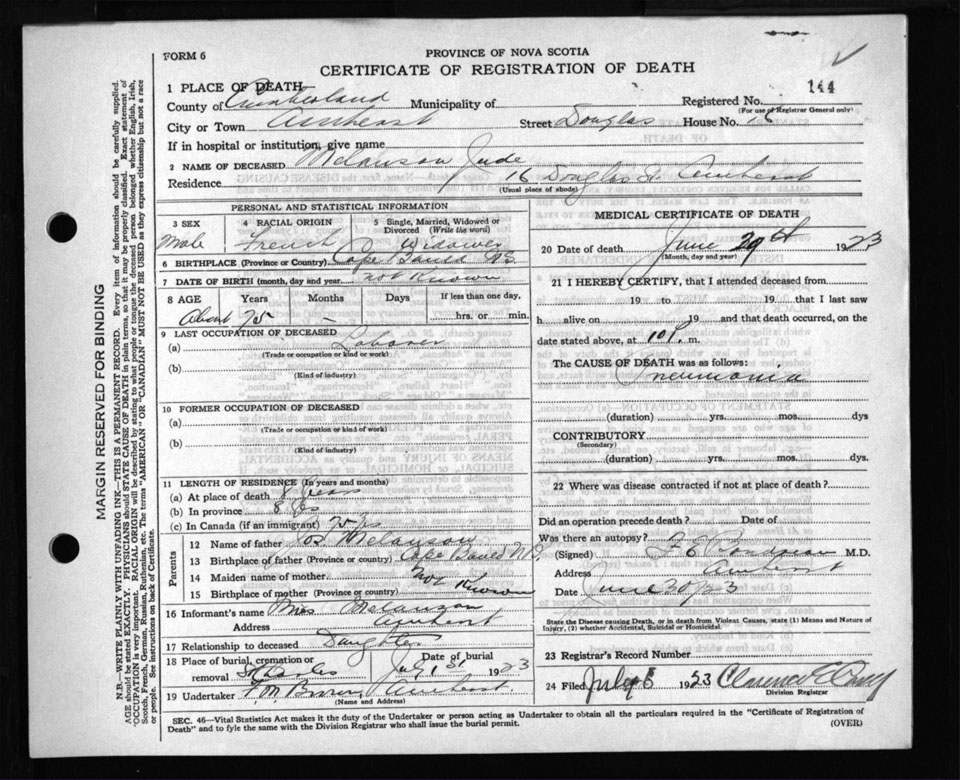 FORM 6
PROVINCE OF NOVA SCOTIA
CERTIFICATE OF REGISTRATION OF DEATH
1 PLACE OF DEATH
144
County of Cumberland Municipality of Registered No.
(For use of Registrar General only)
City or Town Amherst Street Douglas House No. 16
If in hospital or institution, give name
2 NAME OF DECEASED Melanson Jude
Residence 16 Douglas St. Amherst
(Usual place of abode)
PERSONAL AND STATISTICAL INFORMATION
3 SEX 4 RACIAL ORIGIN 5 Single, Married, Widowed or Divorced (Write the word)
Male French Widower
6 BIRTHPLACE (Province or County) Cape Bauld
7 DATE OF BIRTH (month, day and year) not Known
8 AGE Years Months Days If less than one day,
About 75 – hrs. or min.
9 LAST OCCUPATION OF DECEASED
(a) Laborer
(Trade or occupation or kind or work)
(b)
(Kind of industry)
10 FORMER OCCUPATION OF DECEASED
(a)
(Trade or occupation or kind or work)
(b)
(Kind of industry)
11 LENGTH OF RESIDENCE (In years and months)
(a) At place of death 8 years
(b) In province 8 yrs
(c) In Canada (if an immigrant) 75 yrs
Parents
12 Name of father Jos Melanson
13 Birthplace of father (Province or country) Cape Bauld N.B.
14 Maiden name of mother Not Known
15 Birthplace of mother (Province or country)
16 Informant's name Mrs Melanson
Address Amherst
17 Relationship to deceased Daughter
18 Place of burial, cremation or removal Date of burial
July 1st 1923
19 Undertaker F. M. Brown Amherst.
(Name and Address)
MEDICAL CERTIFICATE OF DEATH
20 Date of death June 29th 1923
(Month, day and year)
21 I HEREBY CERTIFY, that I attended deceased from
19 to 19 that I last saw
h alive on 19 and that death occurred, on
date stated above, at 10 P. m.
The CAUSE OF DEATH was as follows:
Pneumonia
(duration) yrs. mos. dys
CONTRIBUTORY
(Secondary)
(duration) yrs. mos. dys.
22 Where was disease contracted if not at place of death?
Did an operation precede death? Date of
Was there an autopsy?
(Signed) M.D.
Address Amherst
Date June 30/23
State the Disease causing Death, or in death from Violent Causes, state (1) Means and Nature of Injury, (2) whether Accidental, Suicidal or Homicidal.
23 Registrar's Record Number
24 Filed July 1923 Clarence
Division Registrar
SEC. 46—Vital Statistics Act makes it the duty of the Undertaker or person acting as Undertaker to obtain all the particulars required in the "Certificate of Registration of
Death" and to fyle the same with the Division Registrar who shall issue the burial permit.
(OVER)
MARGIN RESERVED FOR BINDING
N.B.—WRITE PLAINLY WITH UNFADING INK—THIS IS A PERMANENT RECORD. Every item of information should be carefully supplied.
AGE should be stated EXACTLY. PHYSICIANS should STATE CAUSE OF DEATH in plain terms, so that it may be properly classified. Exact statement of
OCCUPATION is very important. RACIAL ORIGIN will be described by stating to what people or tongue the deceased person belonged whether English, Irish,
Scotch, French, German, Russian, Ruthenian, etc. The terms "AMERICAN" or "CANADIAN" MUST NOT BE USED as they express citizenship but not a race
or people. See instructions on back of Certificate.